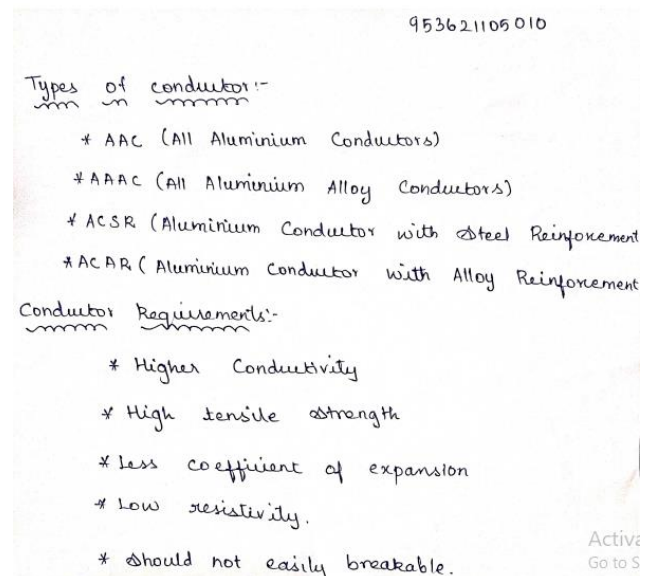 953621105010
Types of conductor:-
* AAC (All Aluminium Conductors)
* AAAC (All Aluminium Alloy Conductors)
* ACSR (Aluminium Conductor with Steel Reinforcement
* ACAR ( Aluminium Conductor with Alloy Reinforcement
Conductor Requirements:-
* Higher Conductivity
* High tensile strength
* Less coefficient of expansion
* Low resistivity.
* Should not easily breakable.
Activa
Go to S